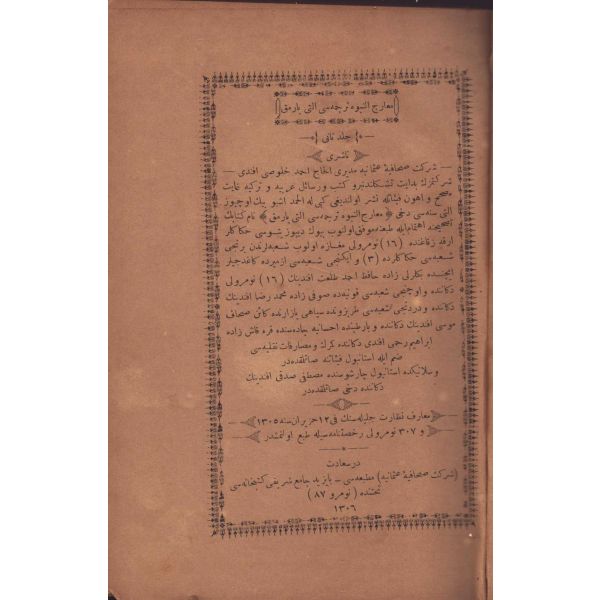 معارج النبوه ترجمه‌سی التی پارمق
جلد ثانی
ناشری
شرکت صحافیهٔ عثمانیه مدیری الحاج احمد خلوصی افندی
شرکتمزك بدایت تشکلندنبرو کتب ورسائل عربیه و ترکیه غایت
مصحح و اهون فیئاتله نشر اولندیغی کبی له الحمد اشبو بیك اوچیوز
التی سنه‌سی دخی ﴿ معارج النبوه ترجمه‌سی التی پارمق ﴾ نام کتابك
تصحیحنه اهتمام ایله طبعنه موفق اولنوب بیوك دیپوزیتوسی حکاکلر
ارقه زقاغنده (١٦) نومرولی مغازه اولوب شعبه‌لرندن برنجی
شعبه‌سی حکاکلرده (٣) و ایکنجی شعبه‌سی ازمیرده کاغدجیلر
ایچنده سکرلی زاده حافظ احمد طلعت افندینك (١٦) نومرولی
دکاننده و اوچنجی شعبه‌سی قونیه‌ده صوفی زاده محمد رضا افندینك
دکاننده ودردنجی شعبه‌سی طربزونده سپاهی پازارنده کائن صحاف
موسی افندینك دکاننده و بارطینده احسانیه جاده‌سنده قره قاش زاده
ابراهیم رحمی افندی دکاننده کمرك ومصارفات نقلیه‌سی
ضم ایله استانبول فیئاتنه صاتلمقده‌در
و سلانیکده استانبول چارشوسنده مصطفی صدقی افندینك
دکاننده دخی صاتلمقده‌در
معارف نظارت جلیله‌سنك فی ١٢ حزیران سنه ١٣٠٥
و ٣٠٧ نومرولی رخصتنامه‌سیله طبع اولنمشدر
درسعادت
(شرکت صحافیهٔ عثمانیه) مطبعه‌سی - بایزید جامع شریفی کتبخانه‌سی
تحتنده (نومرو ٨٧)
١٣٠٦